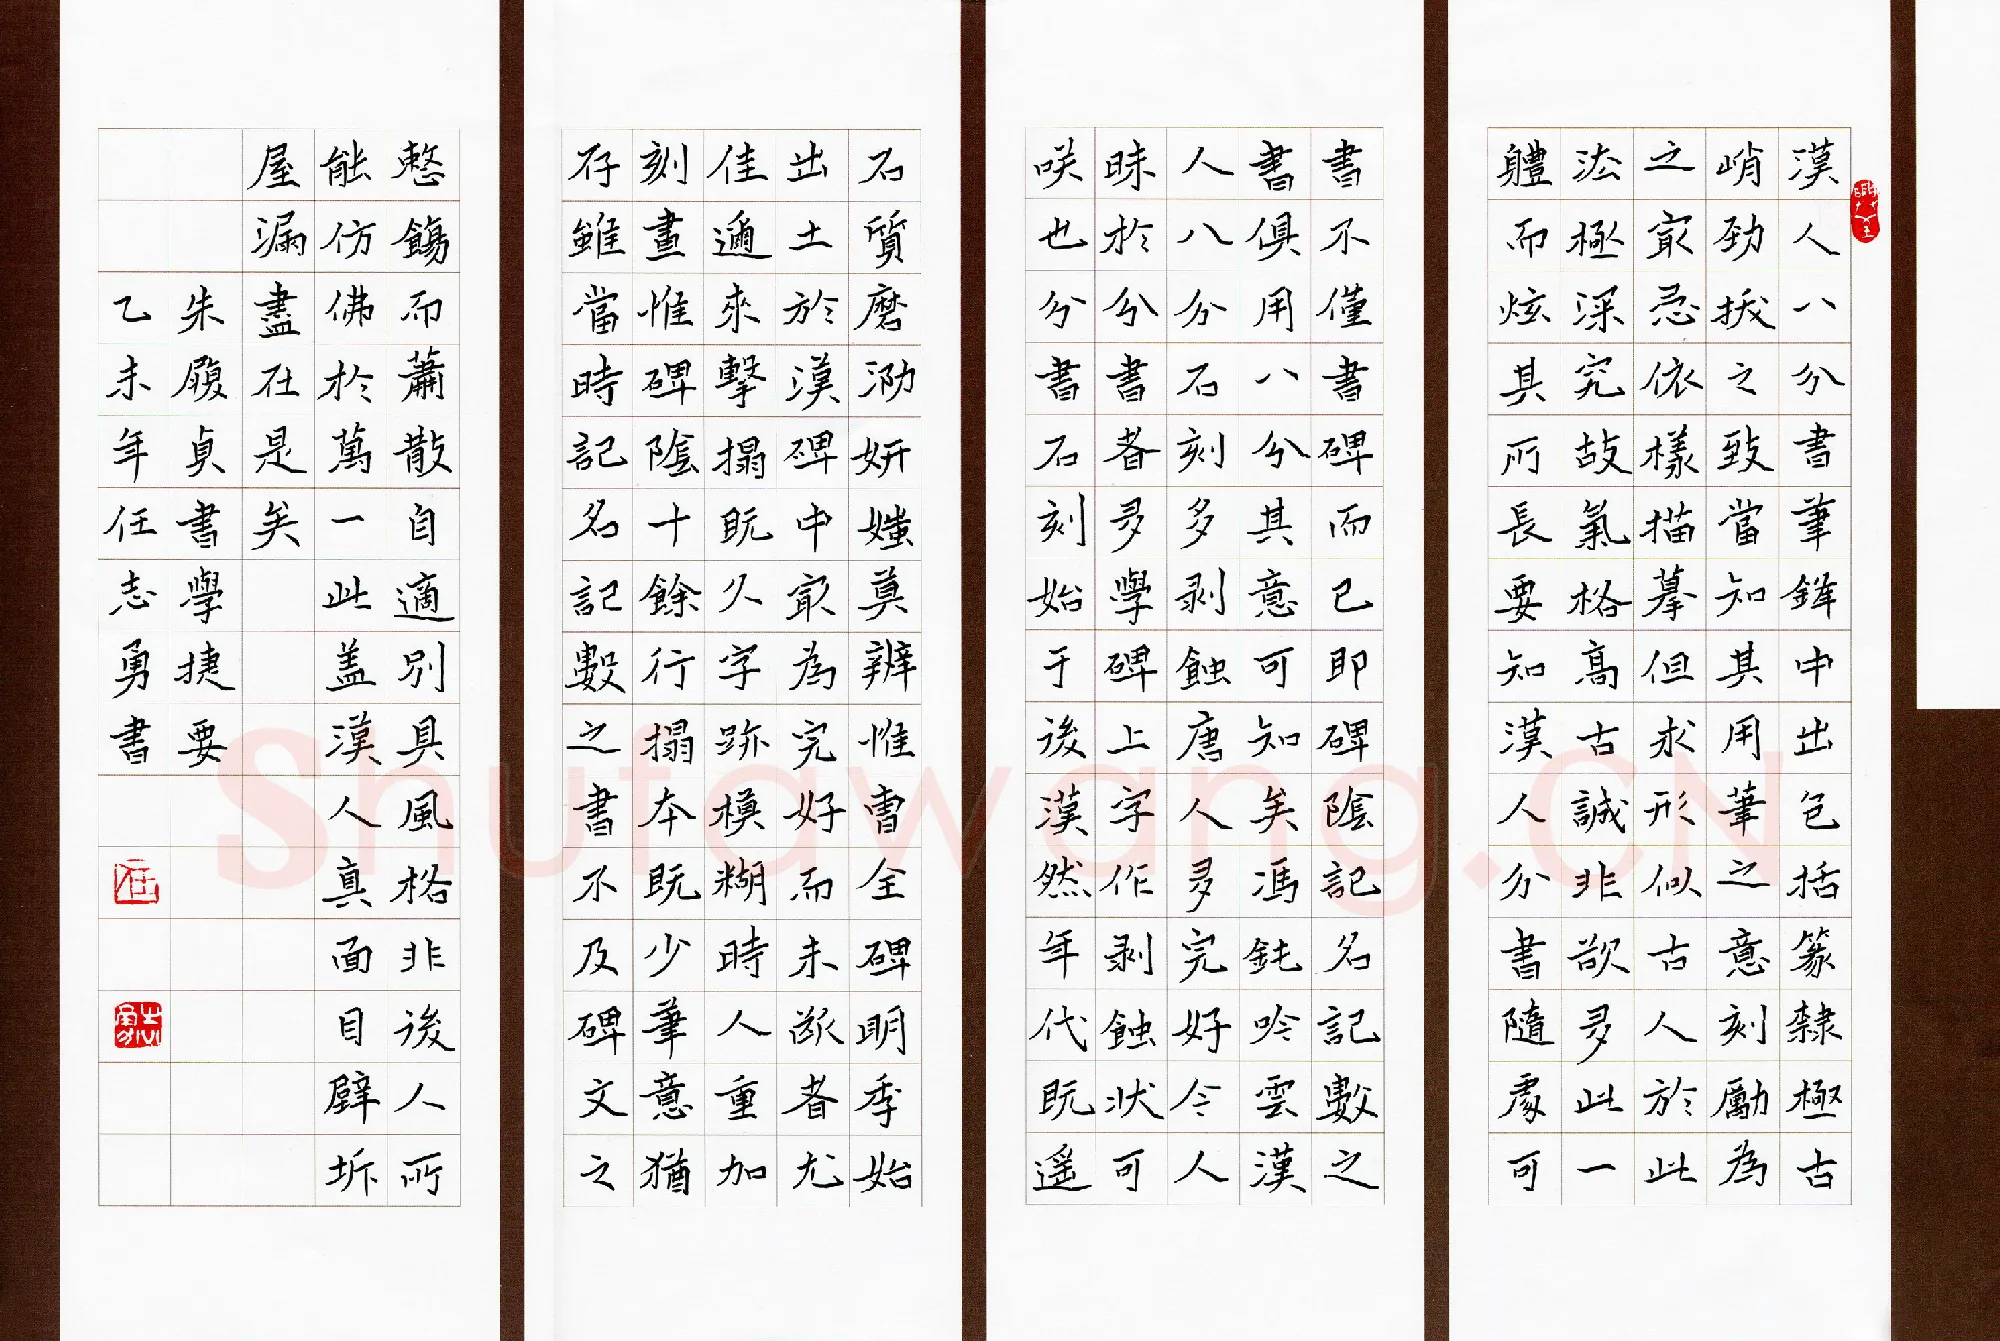 漢人八分書筆鋒中出包括篆隸極古
峭勁拔之致當知其用筆之意刻勵為
之最忌依樣描摹但求形似古人於此
法極深究故氣格高古誠非欲多此一
軆而炫其所長要知漢人分書隨處可
書不僅書碑而已即碑陰記名記數之
書俱用八分其意可知矣馮鈍吟雲漢
人八分石刻多剝蝕唐人多完好今人
昧於分書者多學碑上字作剝蝕狀可
咲也分書石刻始于後漢然年代既遙
石質磨泐妍媸莫辨惟曹全碑明季始
出土於漢碑中最為完好而未斷者尤
佳邇來擊搨既久字跡模糊時人重加
刻畫惟碑陰十餘行搨本既少筆意猶
存雖當時記名記數之書不及碑文之
整飭而蕭散自適別具風格非後人所
能仿佛於萬一此蓋漢人真面目壁坼
屋漏盡在是矣
朱履貞書學捷要
乙未年任志勇書
任
志勇
Shufawang.CN